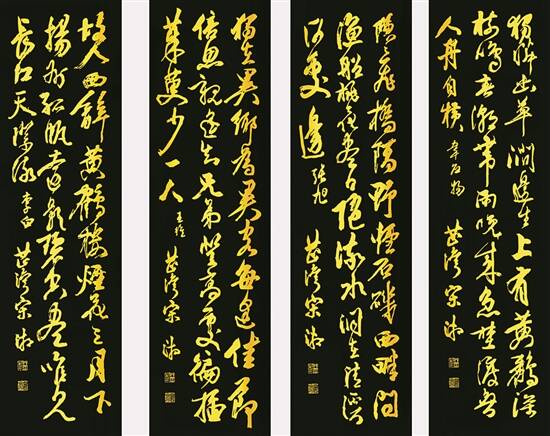 獨憐幽草澗邊生上有黃鸝深
樹鳴春潮帶雨晚來急野渡無
人舟自橫 韋應物 芷灣宋湘
隱隱飛橋隔野煙石磯西畔問
漁船桃花盡日隨流水洞在清溪
何處邊 張旭 芷灣宋湘
獨在異鄉為異客每逢佳節
倍思親遙知兄弟登高處徧插
茱萸少一人 王維 芷灣宋湘
故人西辭黃鶴樓煙花三月下
揚州孤帆遠影碧空盡唯見
長江天際流 李白 芷灣宋湘